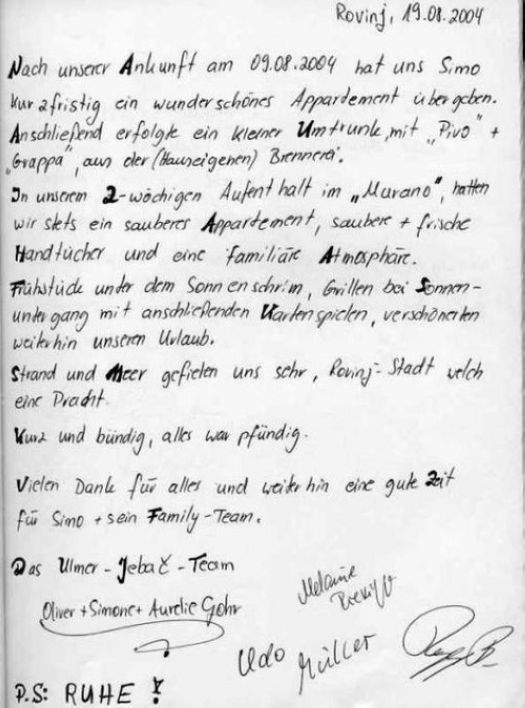 Rovinj, 19.08.2004
Nach unserer Ankunft am 09.08.2004 hat uns Simo
kurzfristig ein wunderschönes Appartement übergeben.
Anschließend erfolgte ein kleiner Umtrunk mit „Pivo" +
„Grappa", aus der (Hauseigenen) Brennerei.
In unserem 2-wöchigen Aufenthalt im „Murano", hatten
wir stets ein sauberes Appartement, saubere + frische
Handtücher und eine familiäre Atmosphäre.
Frühstück unter dem Sonnenschrim, Grillen bei Sonnen-
untergang mit anschließenden Kartenspielen, verschönerten
weiterhin unseren Urlaub.
Strand und Meer gefielen uns sehr, Rovinj-Stadt welch
eine Pracht.
Kurz und bündig, alles war pfündig.
Vielen Dank für alles und weiterhin eine gute Zeit
für Simo + sein Family-Team.
Das Ulmer-Jebač-Team
Oliver + Simone + Aurelie Gohr
Melanie
Udo Müller
P.S: RUHE !